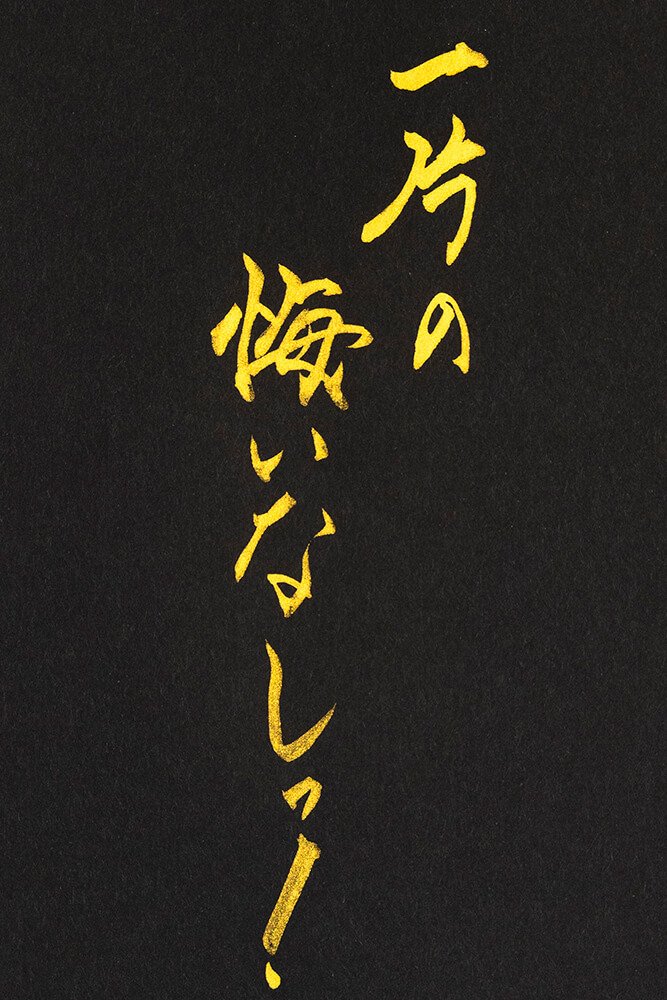 一片の
悔いなしっ!